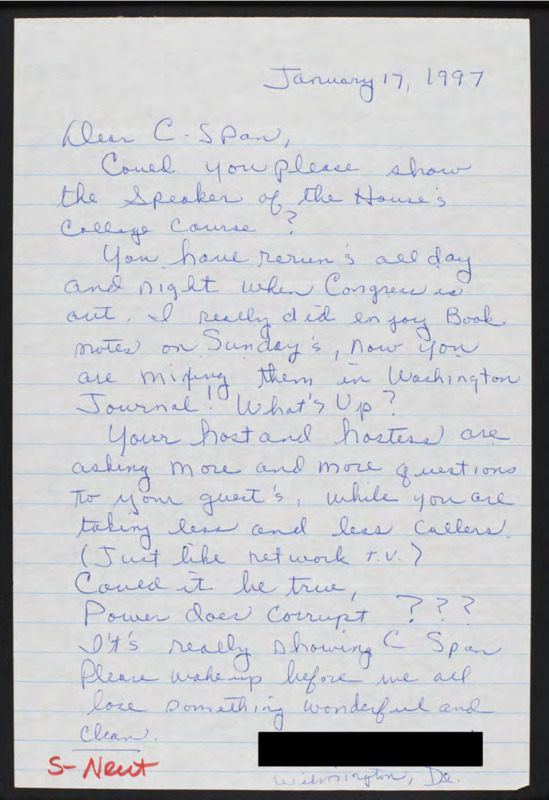 January 17, 1997
Dear C-Span,
Could you please show
the Speaker of the House's
College Course?
You have rerun's all day
and night when Congress is
out. I really did enjoy Book
notes on Sunday's, now you
are mixing them in Washington
Journal! What's Up?
Your host and hostess are
asking more and more questions
to your guest's, while you are
taking less and less callers.
(Just like network T.V.)
Could it be true,
Power does corrupt ???
It's really showing C Span
Please wake up before we all
lose something wonderful and
clean.
S-Newt
Wilmington, De.